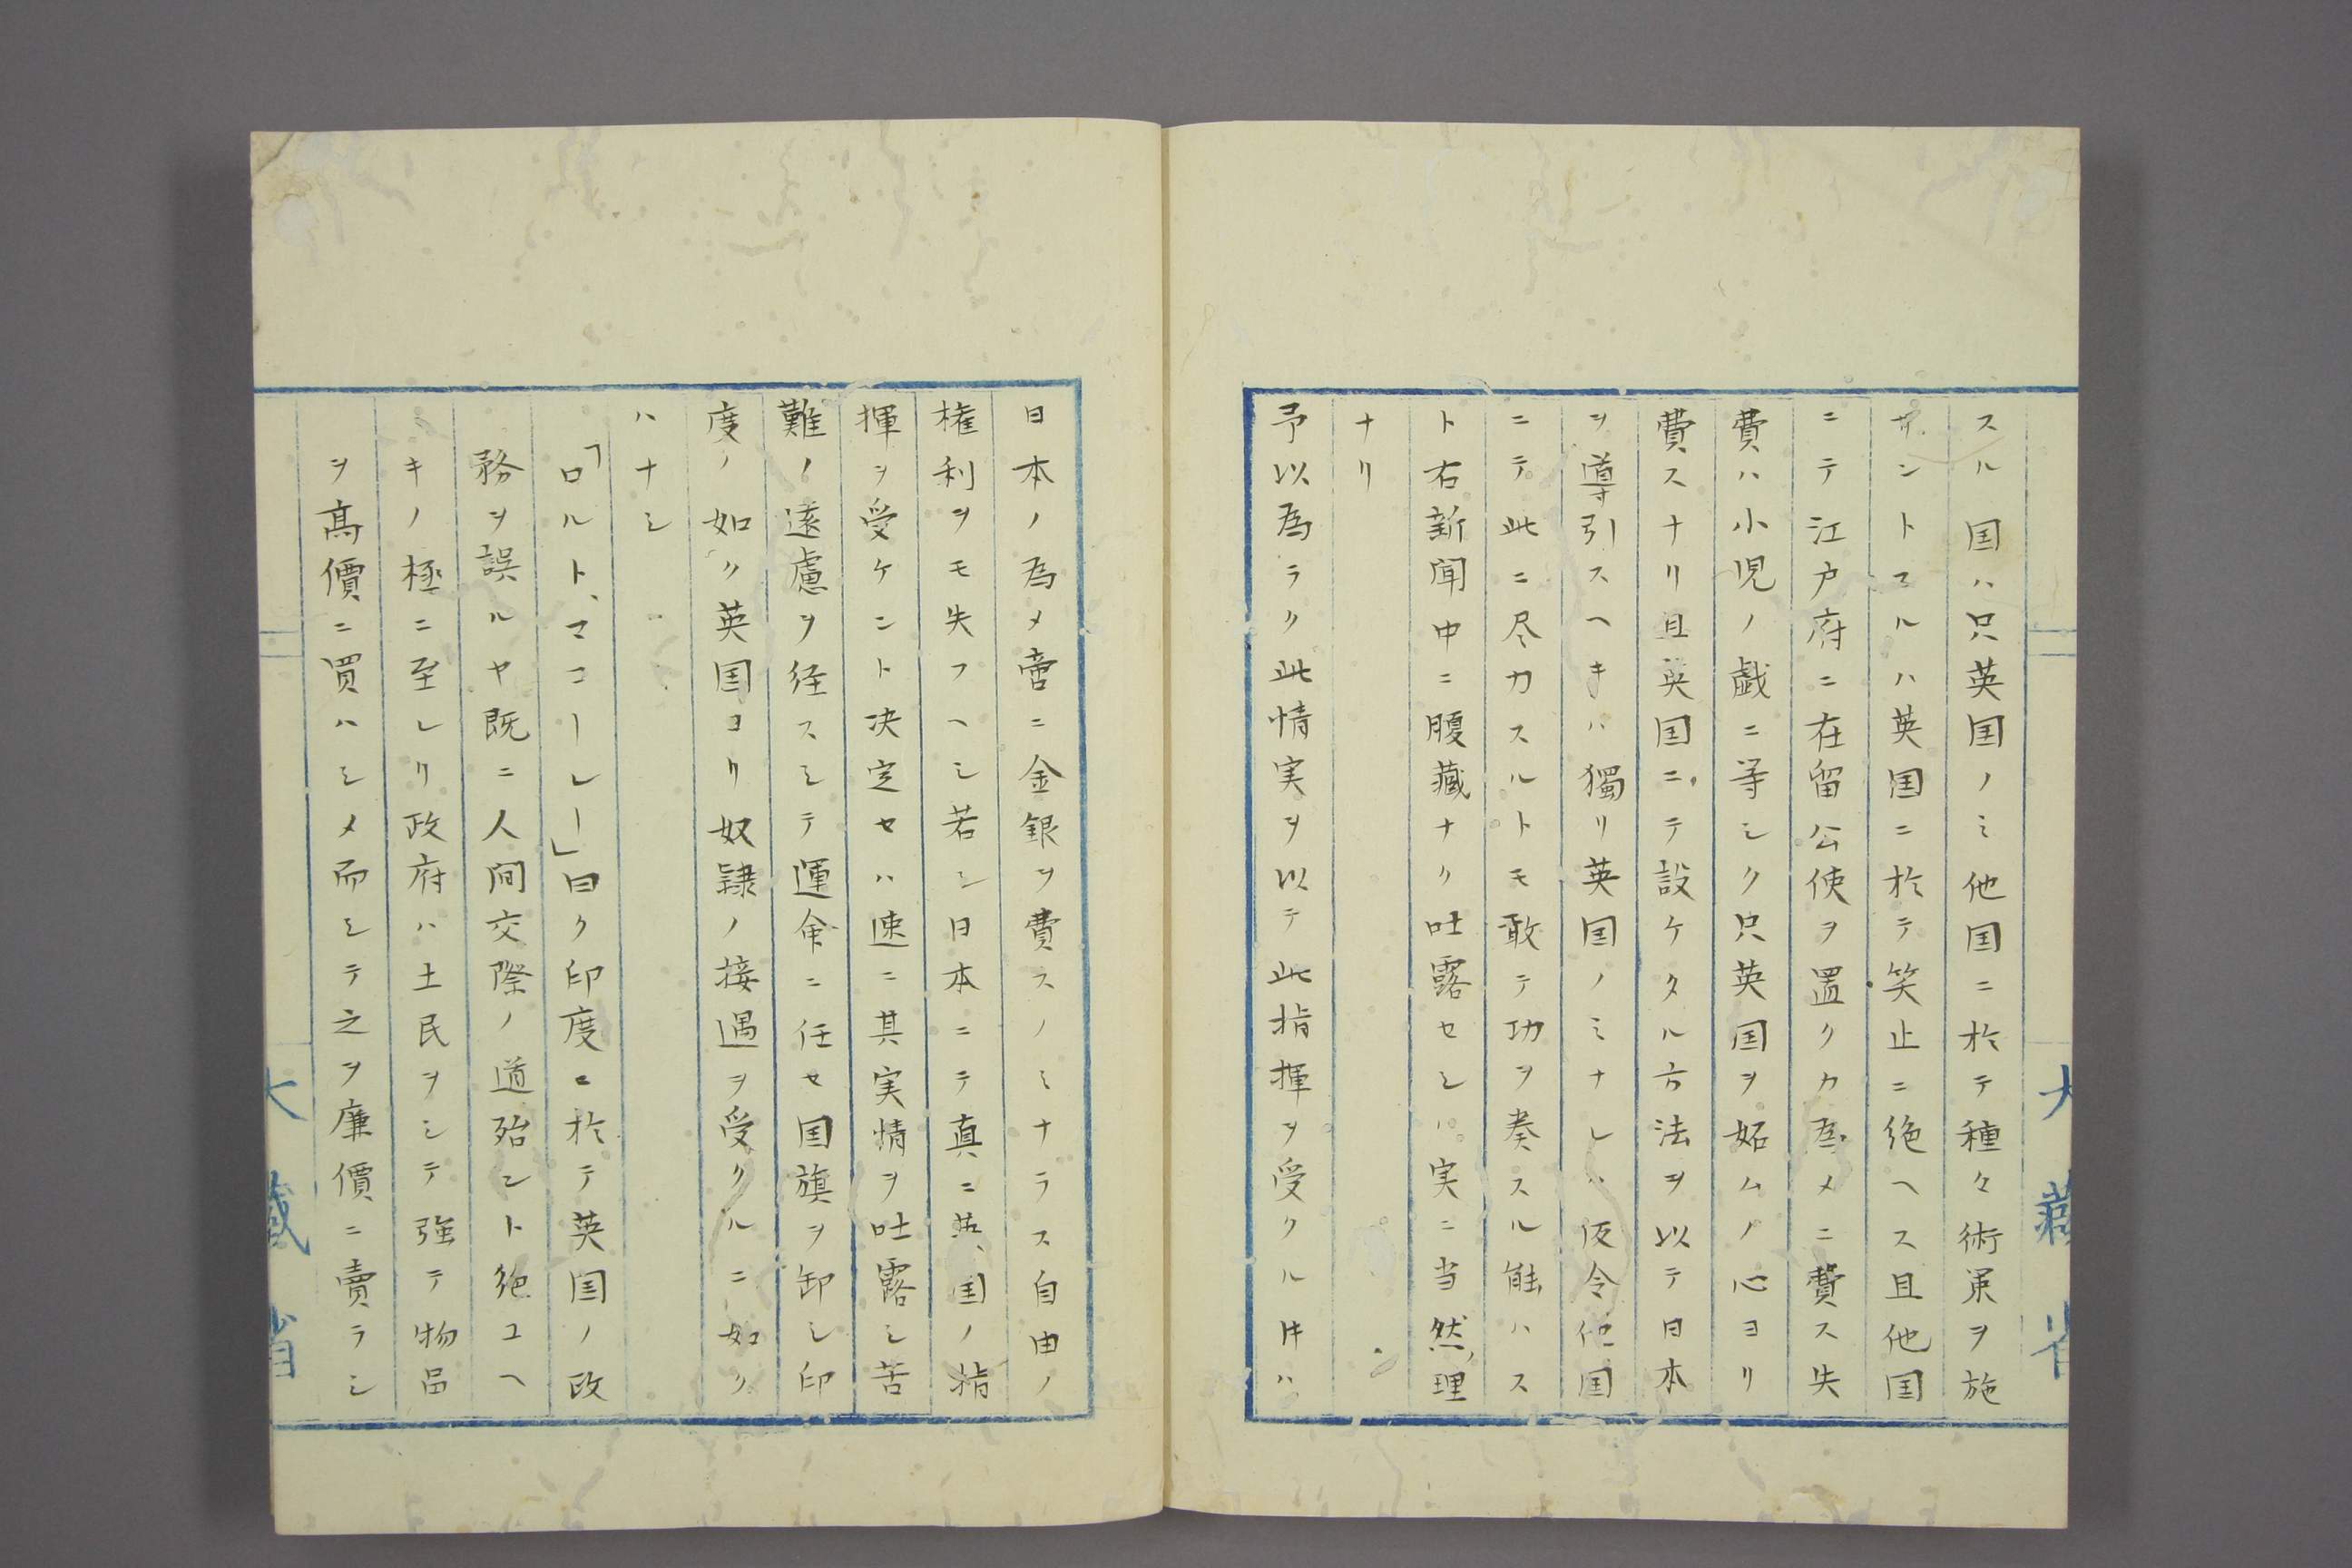 スル国ハ只英国ノミ他国ニ於テ種々術策ヲ施
サントスルハ英国ニ於テ笑止ニ絶ヘス且他国
ニテ江戸府ニ在留公使ヲ置クカ為メニ費ス失
費ハ小児ノ戯ニ等シク只英国ヲ妬ムノ心ヨリ
費スナリ且英国ニテ設ケタル方法ヲ以テ日本
ヲ導引スヘキハ獨リ英国ノミナレハ仮令他国
ニテ此ニ尽力スルトモ敢テ功ヲ奏スル能ハス
ト右新聞中ニ腹蔵ナク吐露セシハ実ニ当然ノ理
ナリ
予以為ラク此情実ヲ以テ此指揮ヲ受クル片ハ
大藏省
日本ノ為メ啻ニ金銀ヲ費スノミナラス自由ノ
権利ヲモ失フヘシ若シ日本ニテ真ニ英国ノ指
揮ヲ受ケント决定セハ速ニ其実情ヲ吐露シ苦
難ノ遠慮ヲ経スシテ運命ニ任セ国旗ヲ卸シ印
度ノ如ク英国ヨリ奴隷ノ接遇ヲ受クルニ如ク
ハナシ
「ロルト、マコーレー」曰ク印度ニ於テ英国ノ政
務ヲ誤ルヤ既ニ人間交際ノ道殆ント絶ユヘ
キノ極ニ至レリ政府ハ土民ヲシテ強テ物品
ヲ高價ニ買ハシメ而シテ之ヲ廉價ニ賣ラシ
大藏省